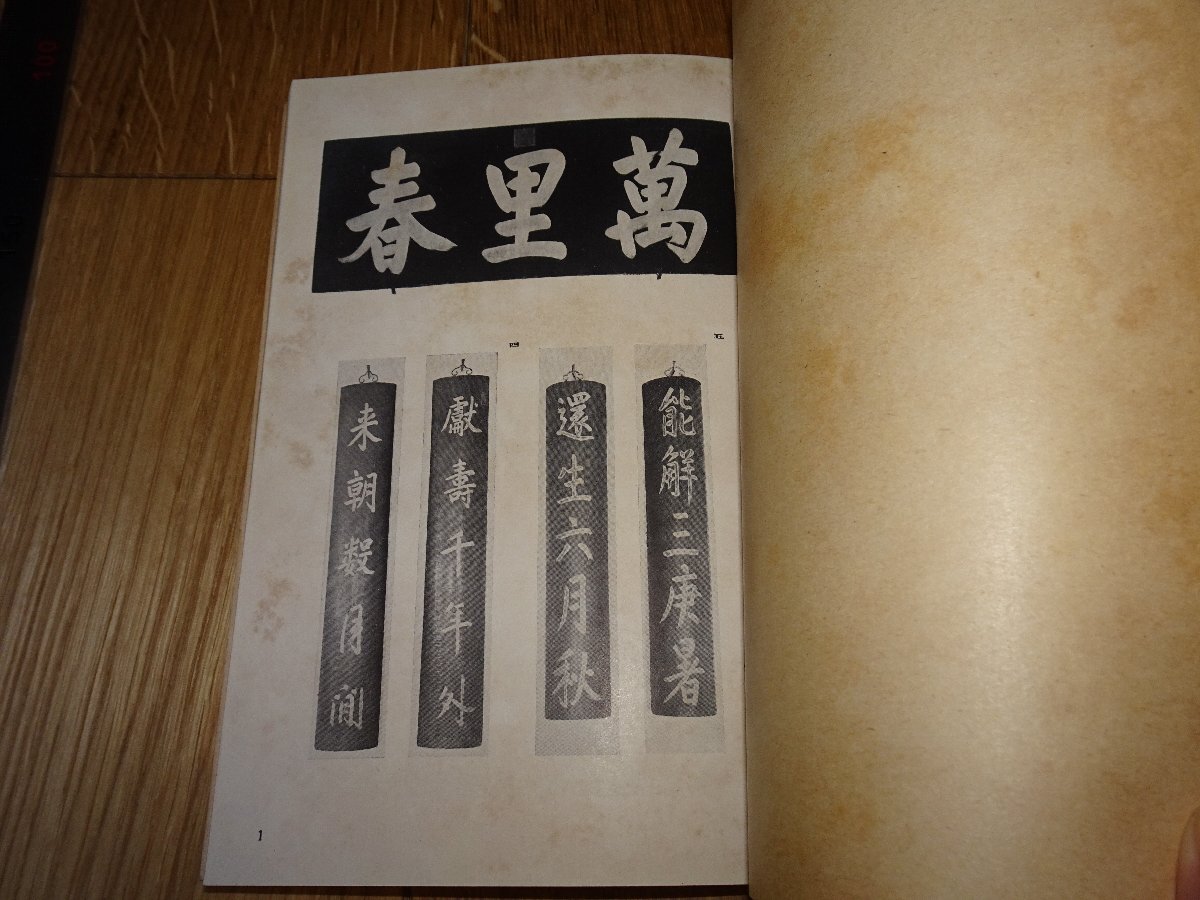 萬里春
五
能解三庚暑
還生六月秋
四
獻壽千年外
来朝數月間
1
100